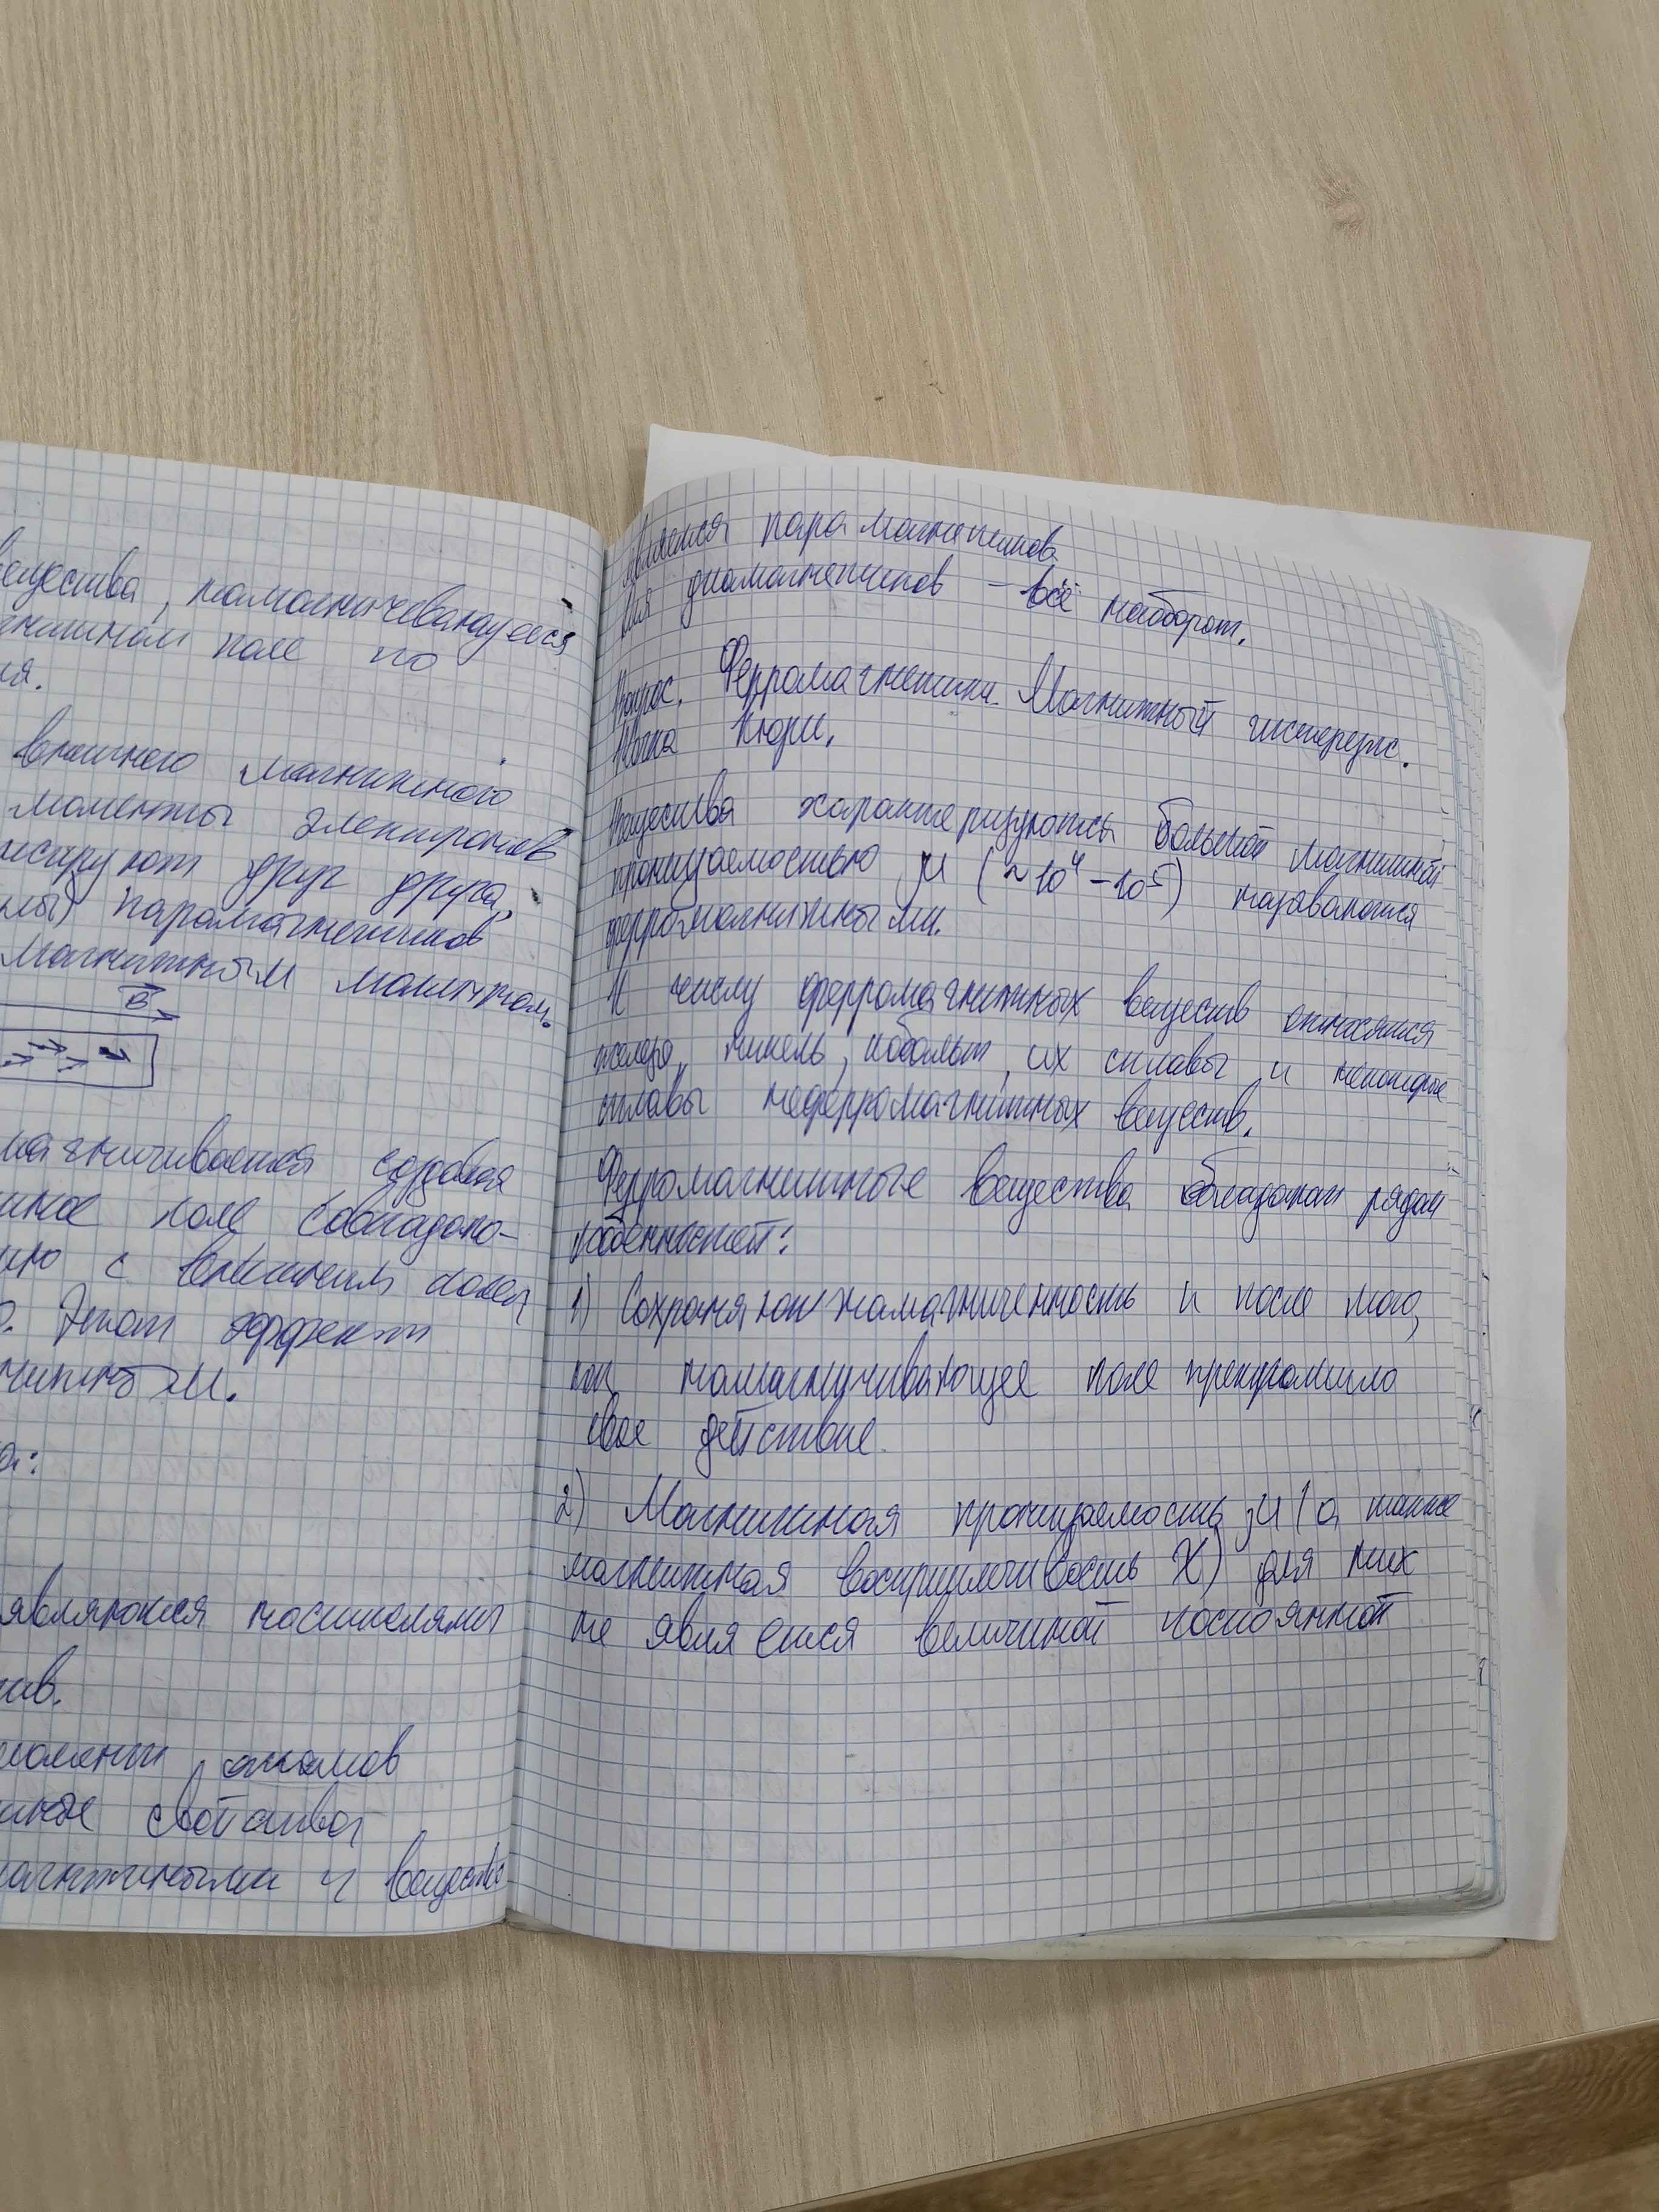 вещества, намагничевающееся
магнитном поле по
ия.
внешнего магнитного
моменты электронов
друг друга,
парамагнетиков
магнитным моментом.
B
намагничивается создавая
поле совпадаю-
с внешним полем
. Этот эффект
а:
являются носителями
моменты атомов
свойства
магнитными и веществ
является парамагнетиков.
для диамагнетиков – всё наоборот.
Вопрос. Ферромагнетики. Магнитный гистерезис.
Точка Кюри.
Вещества характеризуются большой магнитной
проницаемостью μ (~10⁴-10⁵) называются
ферромагнитными.
К числу ферромагнитных веществ относятся
железо, никель, кобальт, их сплавы и некоторые
сплавы неферромагнитных веществ.
Ферромагнитные вещества обладают рядом
особенностей:
1) Сохраняют намагниченность и после того,
как намагничивающее поле прекратило
свое действие.
2) Магнитная проницаемость μ (а также
магнитная восприимчивость X) для них
не является величиной постоянной